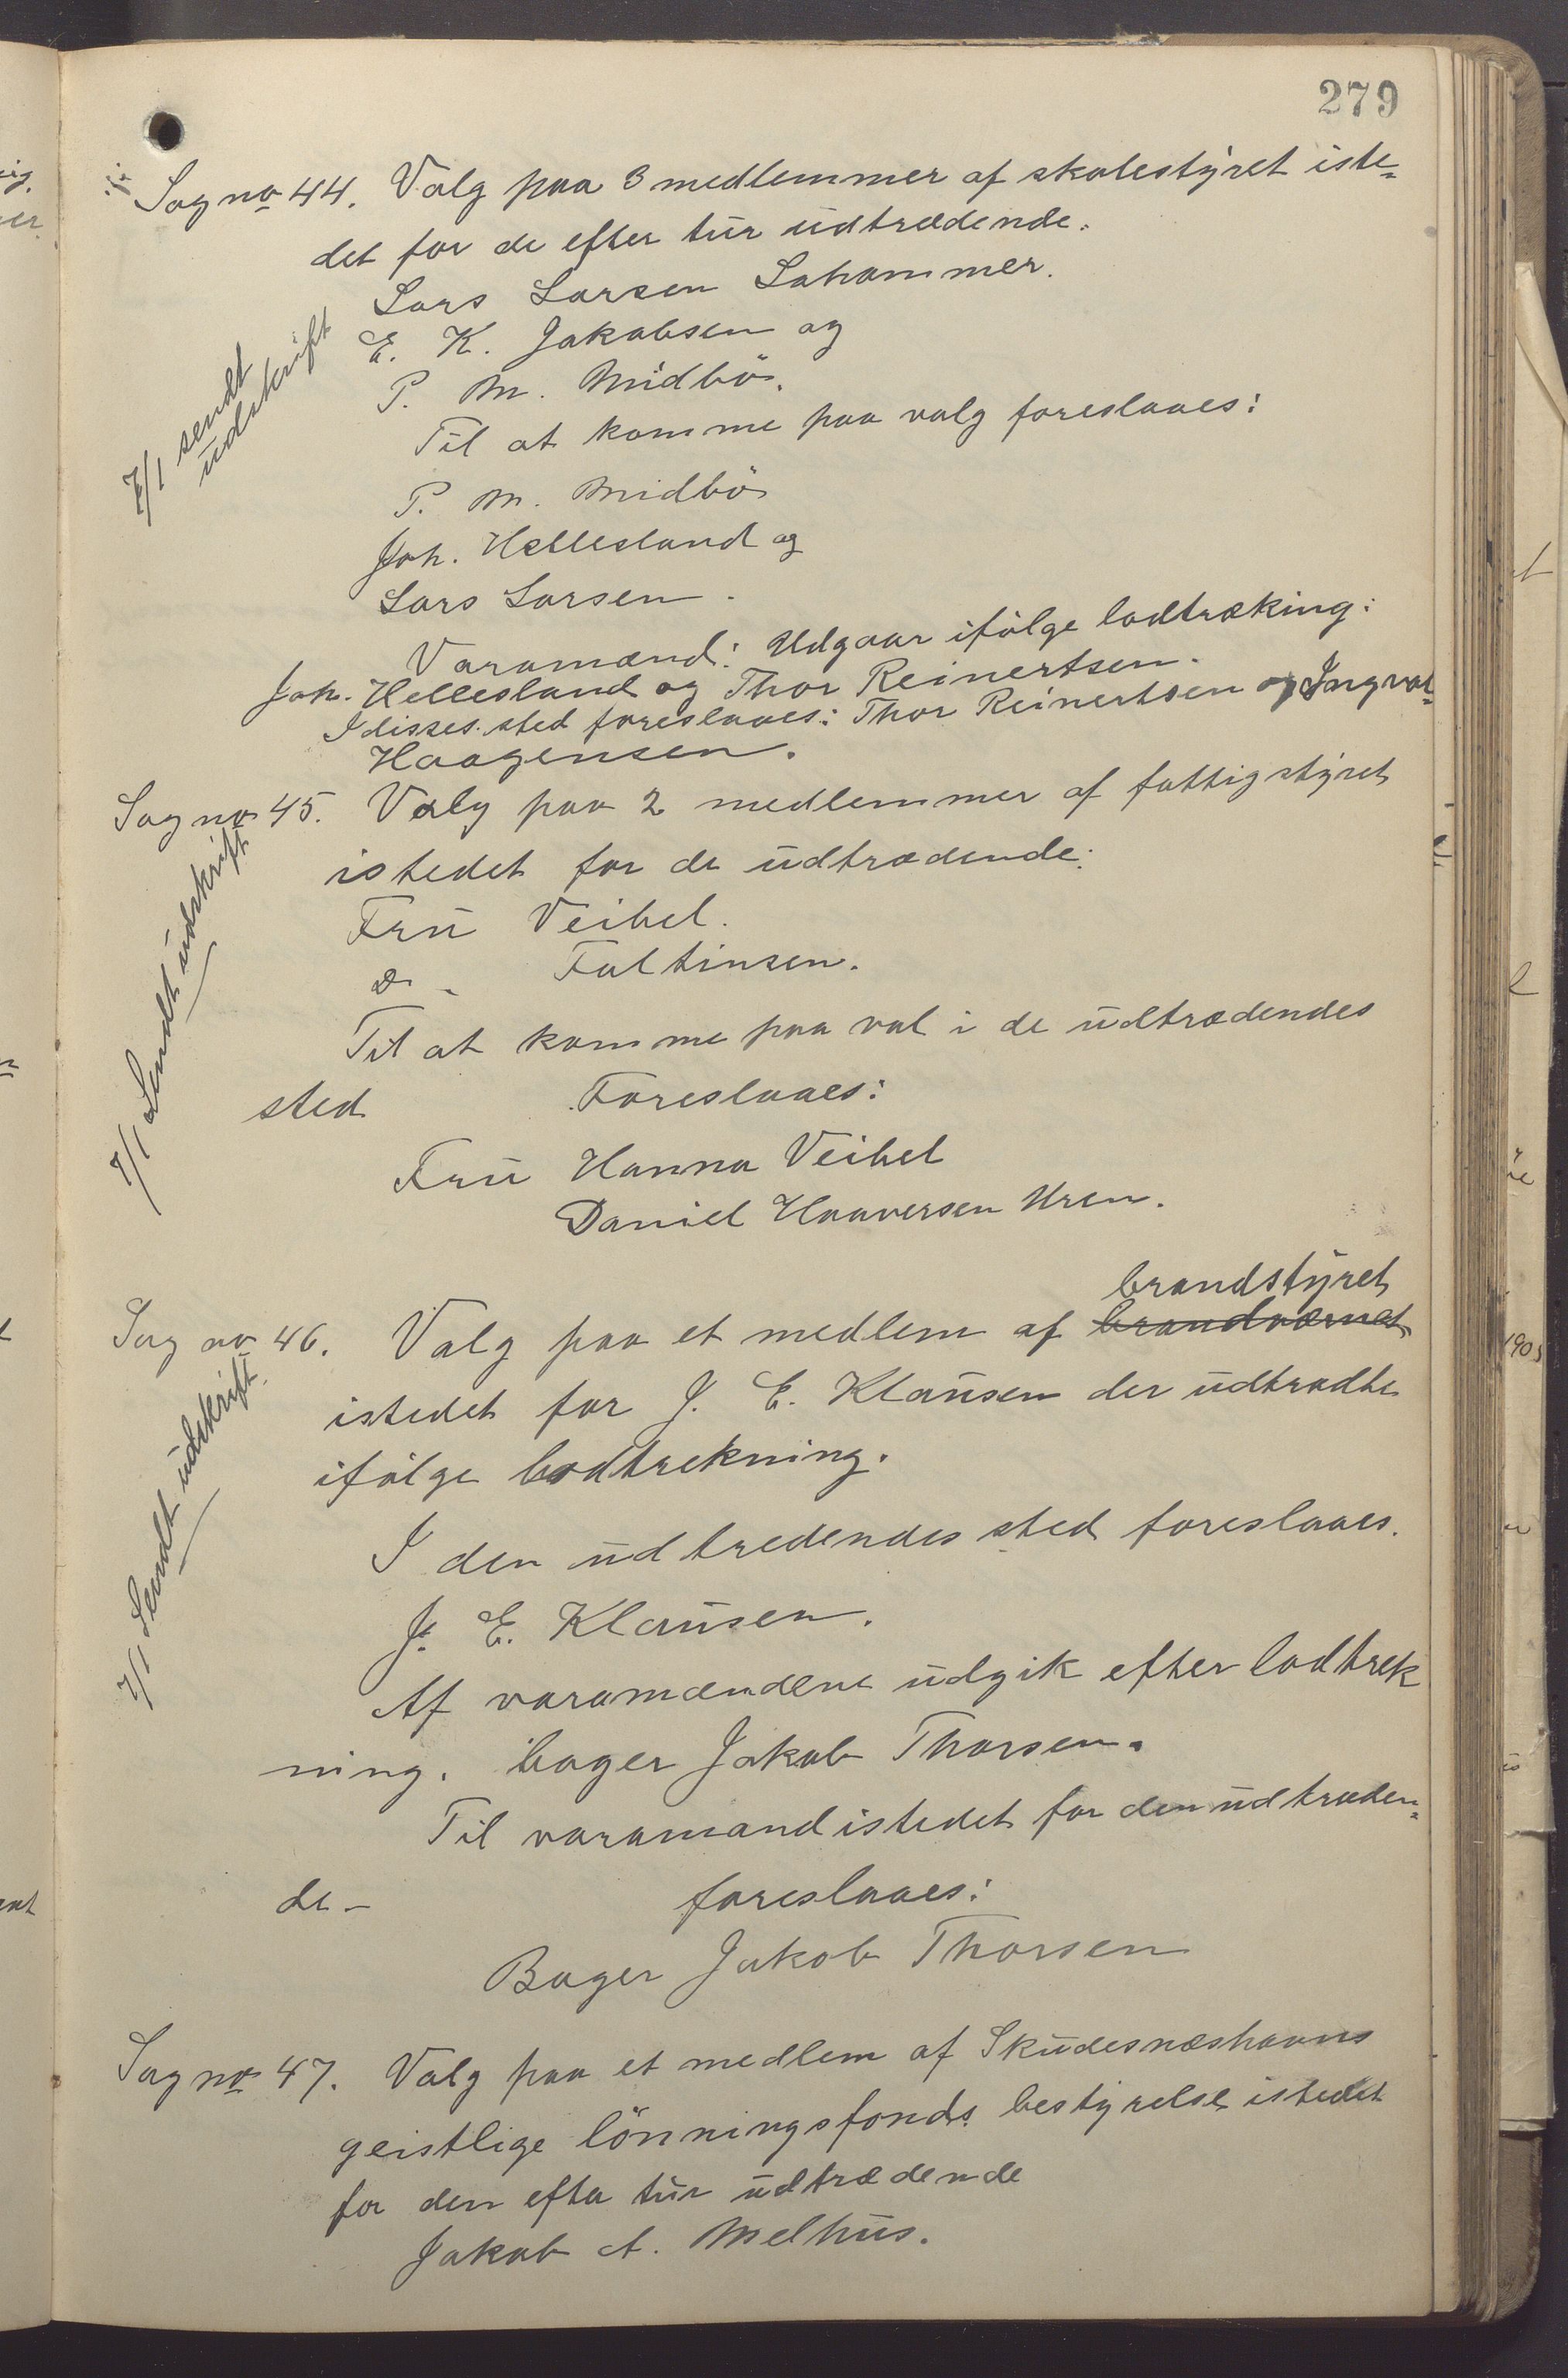 279
Sag no 44. Valg paa 3 medlemmer af skolestyret iste-
det for de efter tur udtrædende.
Lars Larsen Lahammer.
E. K. Jakobsen og
P. M. Midbö.
7/1 sendt
udskrift
Til at komme paa valg foreslaaes:
P. M. Midbö
Joh. Hellesland og
Lars Larsen.
Varamænd: Udgaar ifölge lodtræking:
Joh. Hellesland og Thor Reinertsen.
I disses sted foreslaaes: Thor Reinertsen og Ingval-
Haagensen.
Sag no 45. Valg paa 2 medlemmer af fattigstyret
istedet for de udtrædende:
Fru Veibel.
D. - Faltinsen.
7/1 Sendt udskrift
Til at komme paa val i de udtrædendes
sted Foreslaaes:
Fru Hanna Veibel
Daniel Haaversen Uren.
brandstyret
Sag no 46. Valg paa et medlem af brandværnet
istedet for J. E. Klausen der udtrådte
ifölge lodtrekning.
7/1 Sendt udskrift.
I den udtredendes sted foreslaaes.
J. E. Klausen.
Af varamændene udgik efter lodtrek
ning. bager Jakob Thorsen.
Til varamand istedet for den udtræden-
de - foreslaaes:
Bager Jakob Thorsen
Sag no 47. Valg paa et medlem af Skudesnæshavns
geistlige lönningsfonds bestyrelse istedet
for den efter tur udtrædende
Jakob A. Melhus.